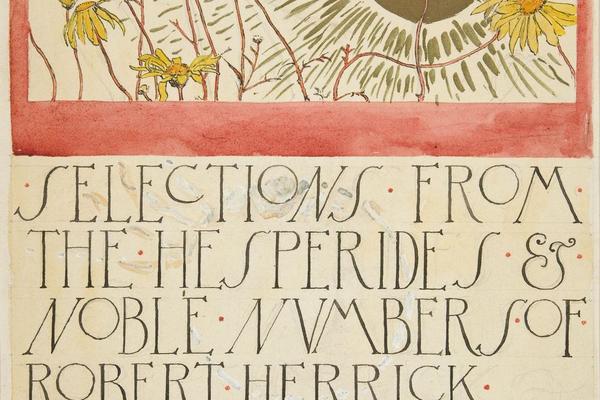 · SELECTIONS · FROM ·
THE · HESPERIDES · & ·
NOBLE · NVMBERS · OF ·
ROBERT · HERRICK ·